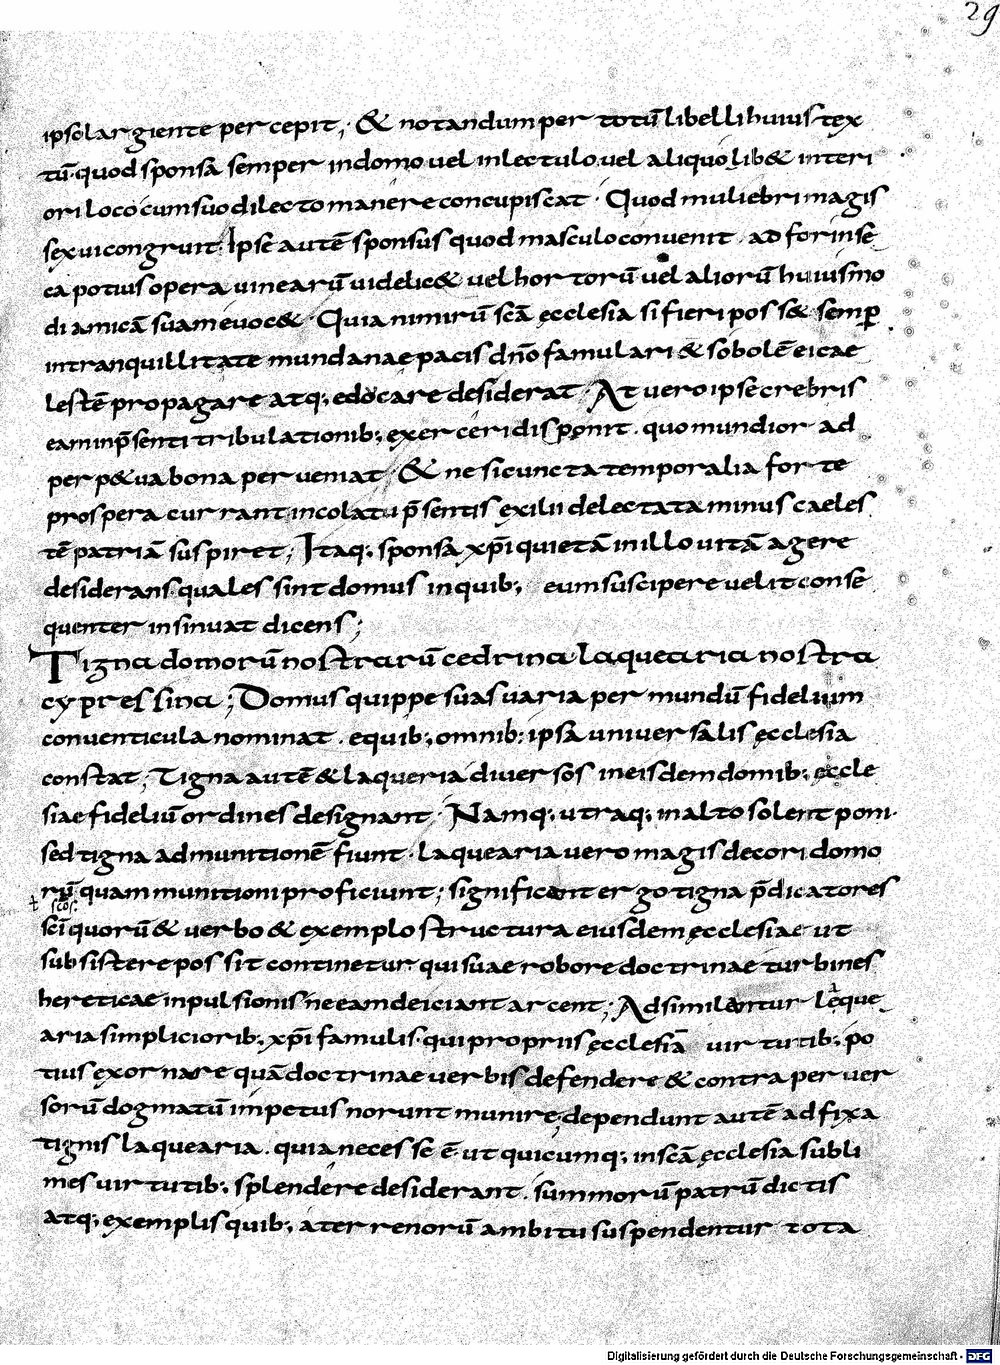 29
ipso largiente percepit; & notandum per totū libelli huius tex
tū quod sponsa semper in domo uel in lectulo uel aliquo lib& interi
ori loco cum suo dilecto manere concupiscat. Quod muliebri magis
sexui congruit. Ipse autē sponsus quod masculo conuenit ad forinse
ca potius opera uinearū uidelic& uel hortorū uel aliorū huiusmo
di amicā suam euoc&. Quia nimirū scā ęcclesia si fieri poss& semp̄
in tranquillitate mundanae pacis dn̄o famulari & sobolē ei cae
lestē propagare atq; edocare desiderat. At uero ipse crebris
eam in p̄senti tribulationib; exerceri disponit. quo mundior ad
perp&ua bona perueniat. & ne si cuncta temporalia forte
prospera currant incolatu p̄sentis exilii delectata minus caeles
tē patriā suspiret; Itaq; sponsa xp̄i quietā in illo uitā agere
desiderans quales sint domus in quib; eum suscipere uelit conse
quenter insinuat dicens;
Tigna domorū nostrarū cedrina laquearia nostra
cypressina; Domus quippe suas uaria per mundū fidelium
conuenticula nominat. e quib; omnib; ipsa uniuersalis ęcclesia
constat; Tigna autē & laqueria diuersos in eisdem domib; ęccle
siae fideliū ordines designant. Namq; utraq; in alto solent poni.
sed tigna ad munitionē fiunt. laquearia uero magis decori domo
rū quam munitioni proficiunt; significant ergo tigna p̄dicatores
ł scōs.
scī quorū & uerbo & exemplo structura eiusdem ęcclesiae ut
subsistere possit continetur qui suae robore doctrinae turbines
hereticae inpulsionis ne eam deiciant arcent; Adsimilantur leque
aria simpliciorib; xp̄i famulis. qui propriis ęcclesiā uirtutib; po
tius exornare quā doctrinae uerbis defendere & contra peruer
sorū dogmatū impetus norunt munire; dependunt autē ad fixa
tignis laquearia. quia necesse ē ut quicumq; in scā ęcclesia subli
mes uirtutib; splendere desiderant. summorū patrū dictis
atq; exemplis quib; a terrenorū ambitu suspendentur tota
Digitalisierung gefördert durch die Deutsche Forschungsgemeinschaft - DFG